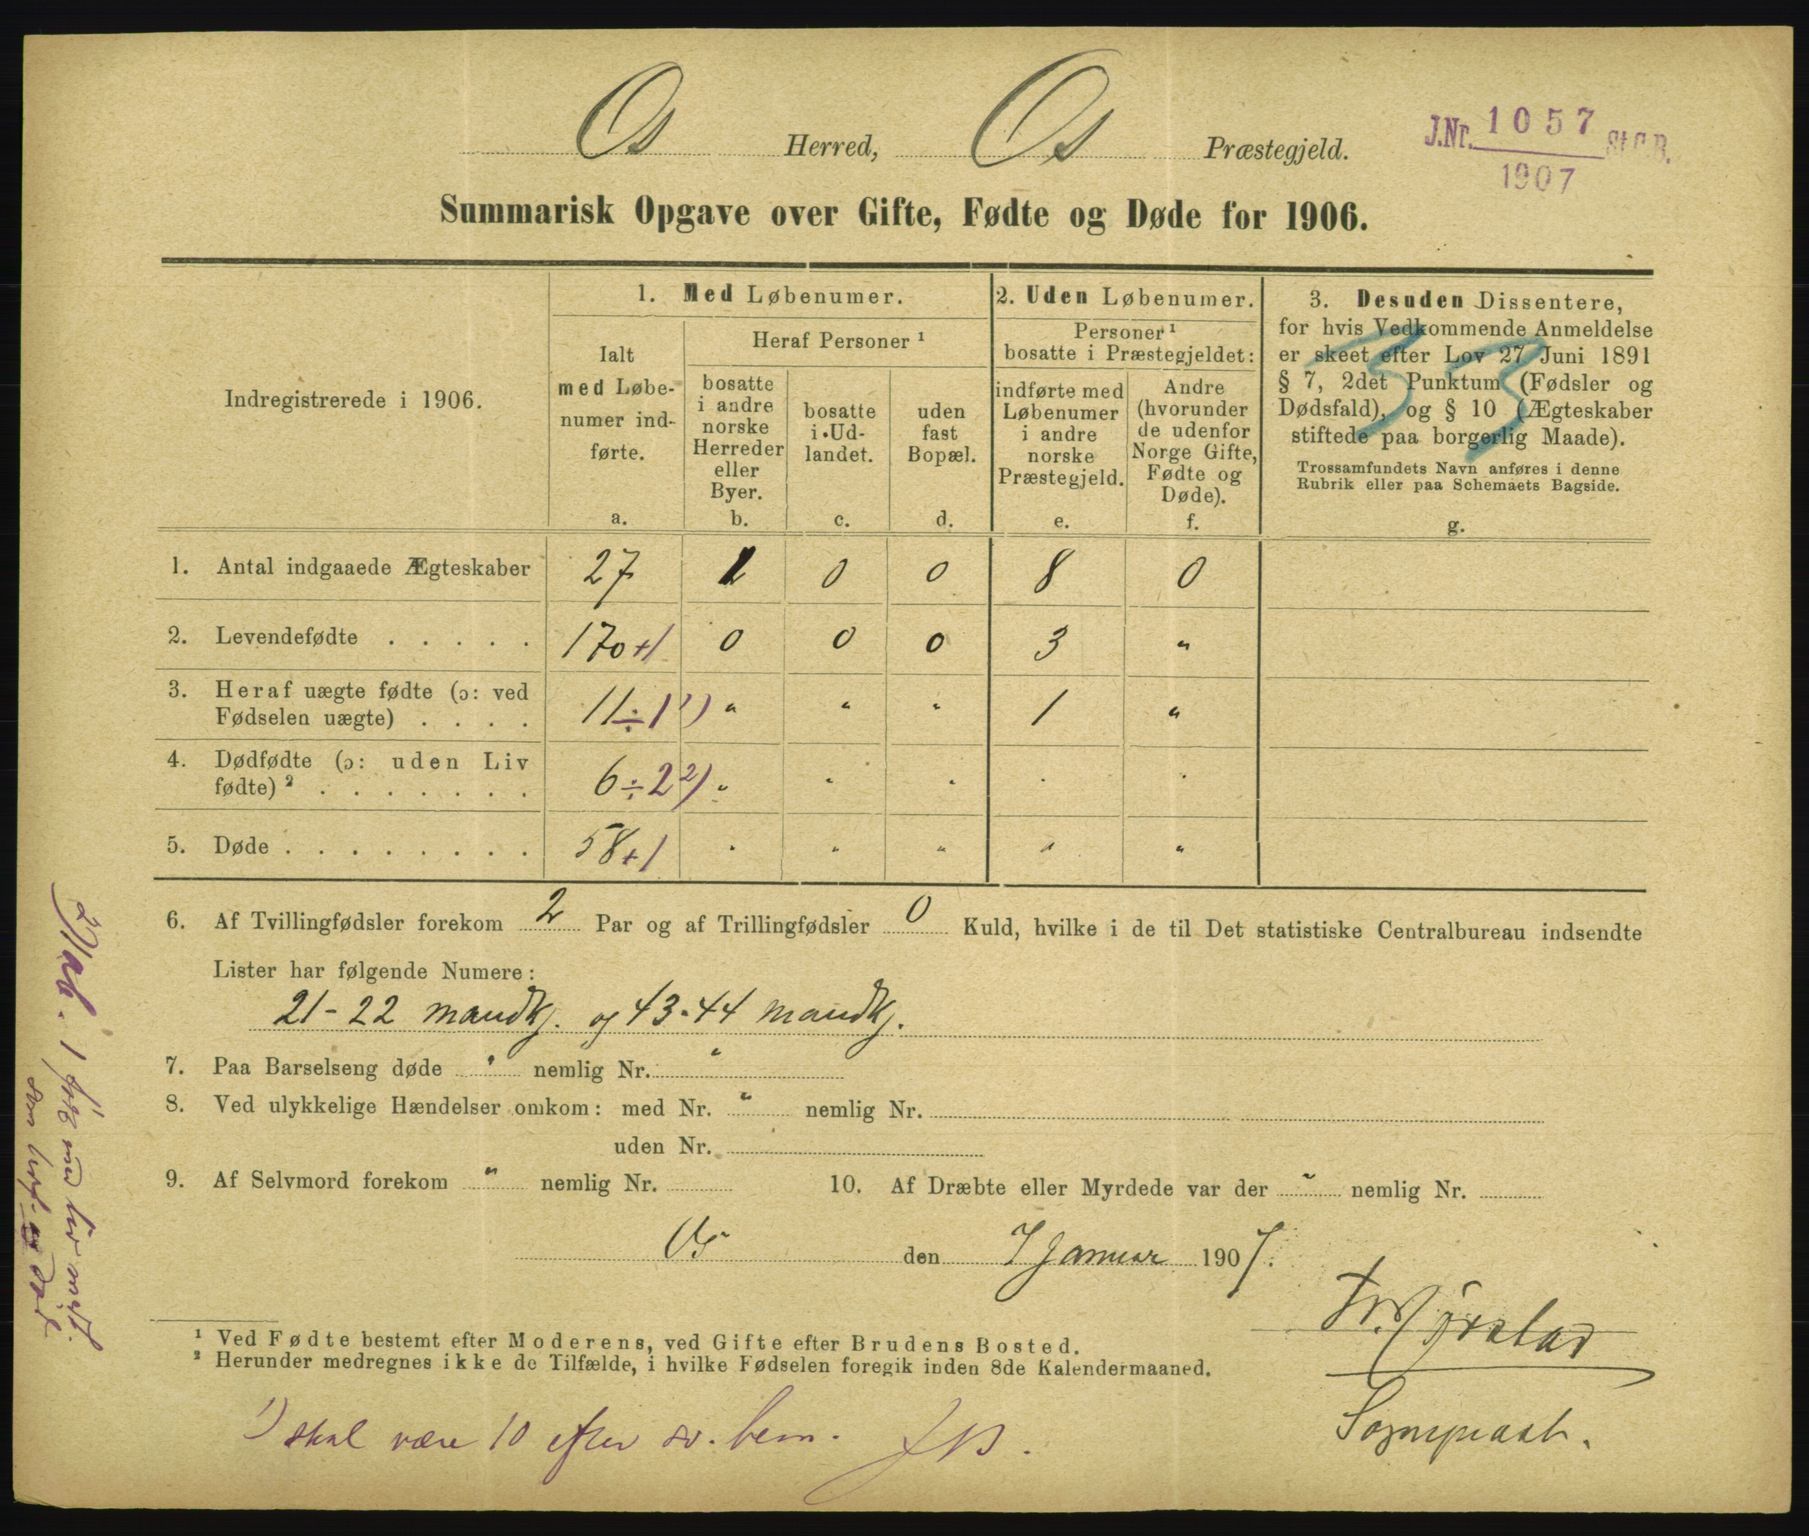 Os Herred, Os Præstegjeld.
J.Nr. 1057 St.C.B.
1907
Summarisk Opgave over Gifte, Fødte og Døde for 1906.
Indregistrerede i 1906.
1. Med Løbenumer.
Ialt
med Løbe-
numer ind-
førte.
a.
Heraf Personer ¹
bosatte
i andre
norske
Herreder
eller
Byer.
b.
bosatte
i Ud-
landet.
c.
uden
fast
Bopæl.
d.
2. Uden Løbenumer.
Personer ¹
bosatte i Præstegjeldet:
indførte med
Løbenumer
i andre
norske
Præstegjeld.
e.
Andre
(hvorunder
de udenfor
Norge Gifte,
Fødte og
Døde).
f.
3. Desuden Dissentere,
for hvis Vedkommende Anmeldelse
er skeet efter Lov 27 Juni 1891
§ 7, 2det Punktum (Fødsler og
Dødsfald), og § 10 (Ægteskaber
stiftede paa borgerlig Maade).
Trossamfundets Navn anføres i denne
Rubrik eller paa Schemaets Bagside.
g.
33
1. Antal indgaaede Ægteskaber 27 1 0 0 8 0
2. Levendefødte . . . . . 170+1 0 0 0 3 "
3. Heraf uægte fødte (ɔ: ved
Fødselen uægte) . . . . 11÷1 ¹) " " " 1 "
4. Dødfødte (ɔ: uden Liv
fødte) ² . . . . . . . 6÷2 ²) " " " " "
5. Døde . . . . . . . . 58+1 " " " " "
6. Af Tvillingfødsler forekom 2 Par og af Trillingfødsler 0 Kuld, hvilke i de til Det statistiske Centralbureau indsendte
Lister har følgende Numere:
21-22 mandkj. og 43-44 mandkj.
7. Paa Barselseng døde " nemlig Nr. "
8. Ved ulykkelige Hændelser omkom: med Nr. " nemlig Nr.
uden Nr.
9. Af Selvmord forekom " nemlig Nr.
10. Af Dræbte eller Myrdede var der " nemlig Nr.
Os den 7 Januar 1907.
Sogneprest.
¹ Ved Fødte bestemt efter Moderens, ved Gifte efter Brudens Bosted.
² Herunder medregnes ikke de Tilfælde, i hvilke Fødselen foregik inden 8de Kalendermaaned.
¹) skal være 10 efter sv. bem.